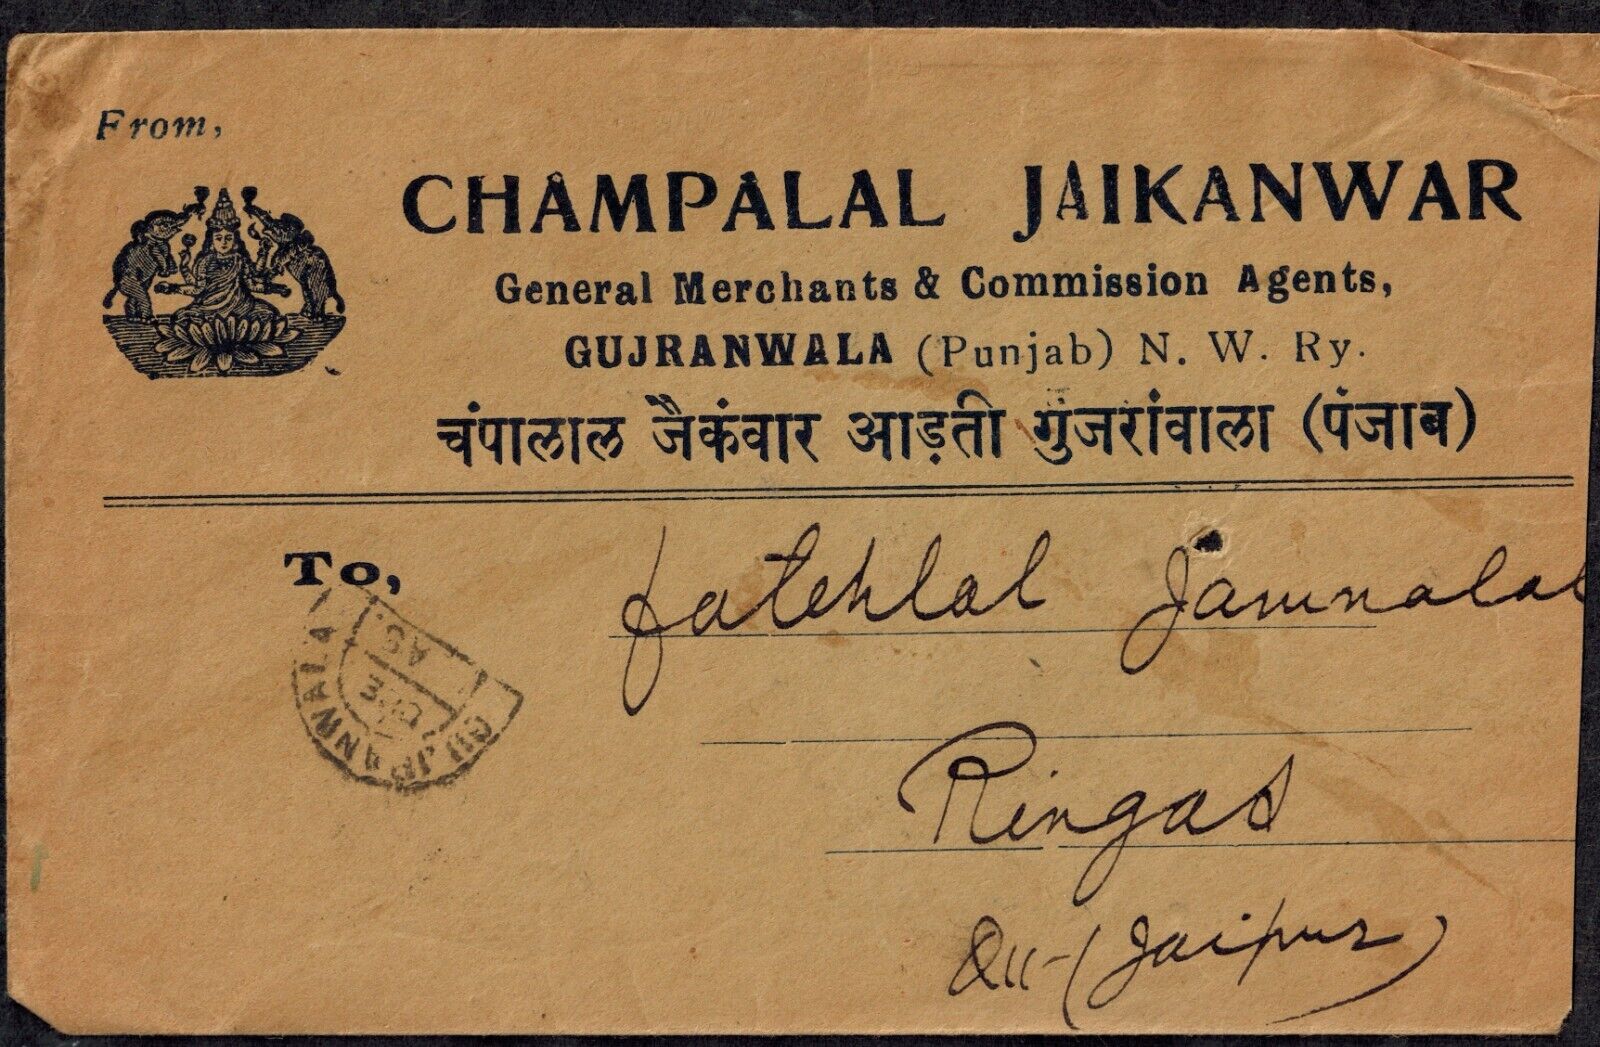 From,
CHAMPALAL JAIKANWAR
General Merchants & Commission Agents,
GUJRANWALA (Punjab) N. W. Ry.
चंपालाल जैकंवार आड़ती गुंजरांवाला (पंजाब)
To,
fatehlal Jamnalal
GUJRANWALA
Ringas
(Jaipur)